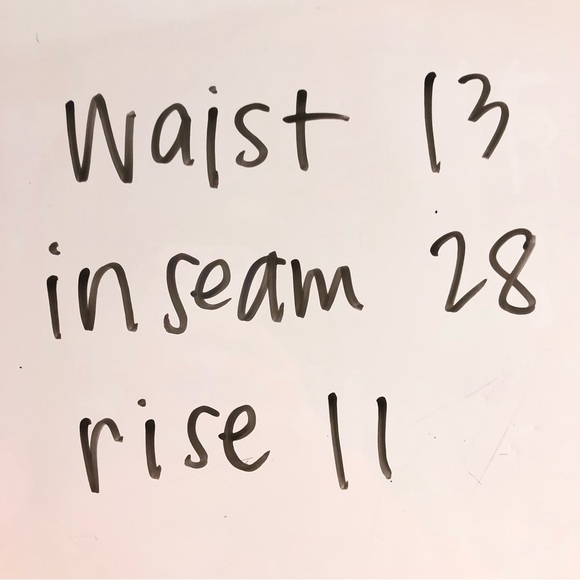 Waist 13
inseam 28
rise 11